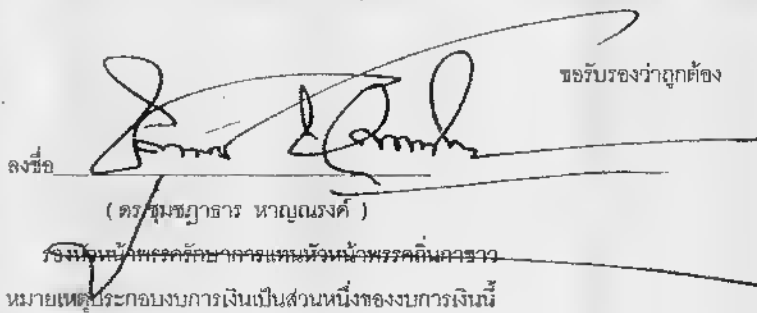 ขอรับรองว่าถูกต้อง
ลงชื่อ
( ดร.ชุมชฎาธาร หาญณรงค์ )
รองหัวหน้าพรรครักษาการแทนหัวหน้าพรรคถิ่นกาขาว
หมายเหตุประกอบงบการเงินเป็นส่วนหนึ่งของงบการเงินนี้